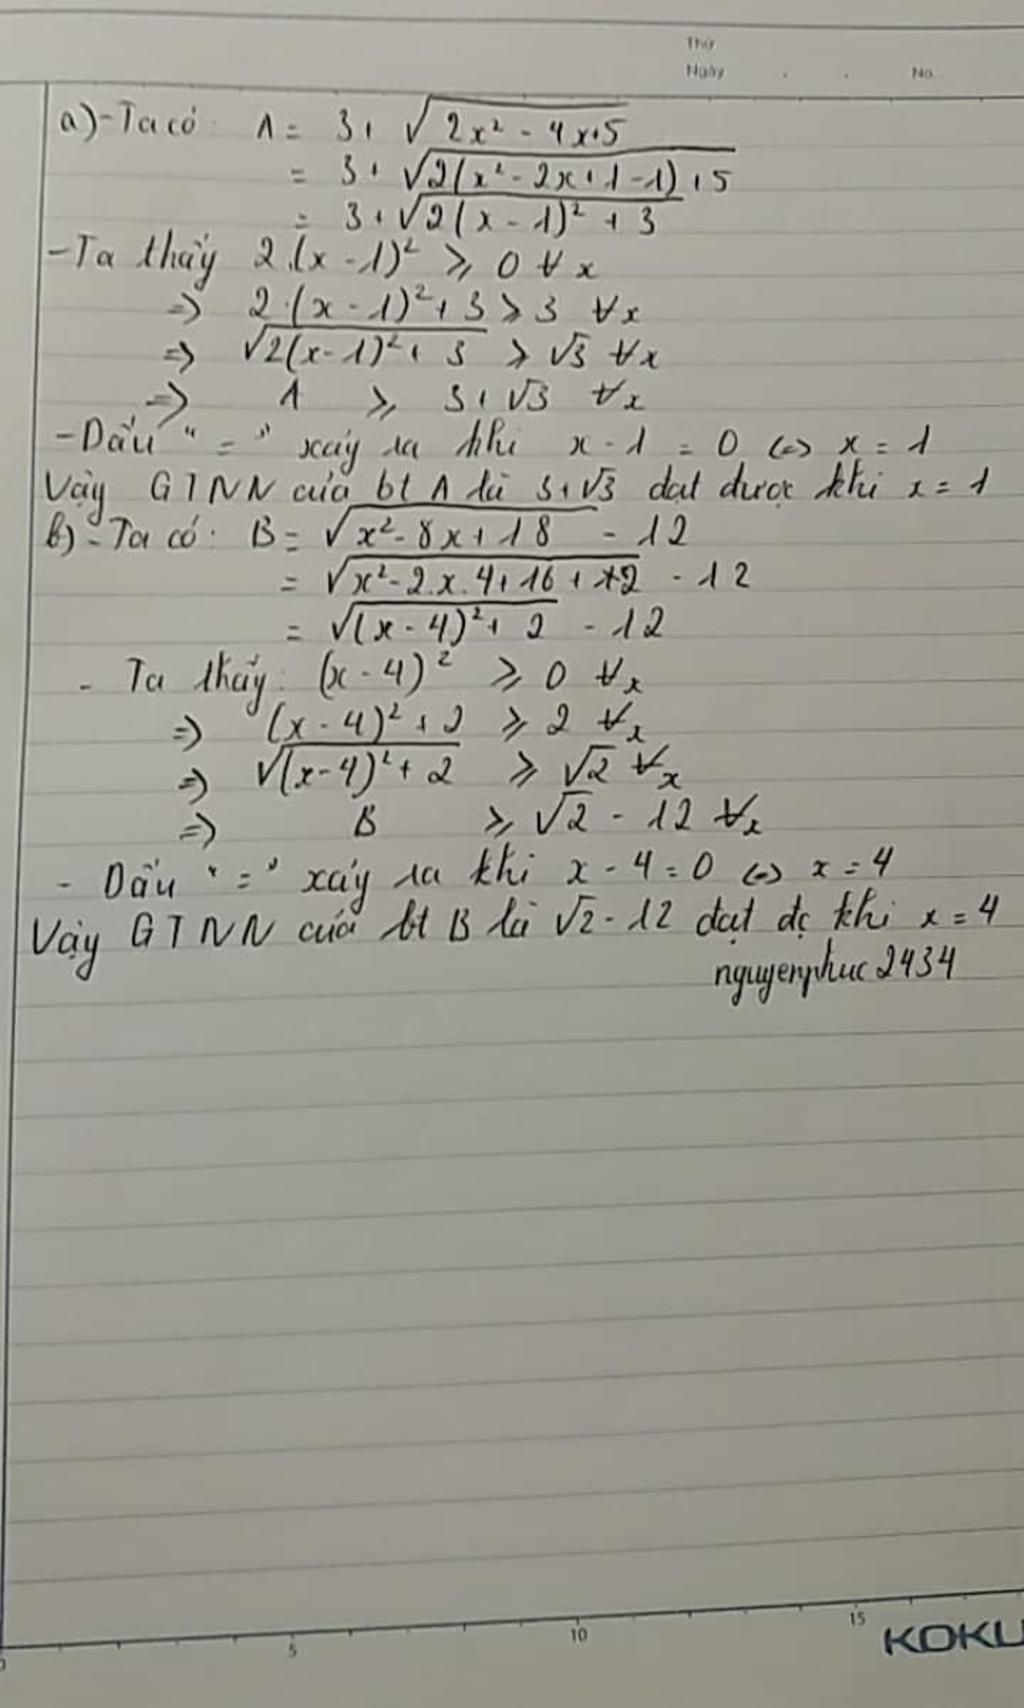 Thứ
Ngày . . No.
a) - Ta có A = 3 + √2x² - 4x + 5
= 3 + √2(x² - 2x + 1 - 1) + 5
= 3 + √2(x - 1)² + 3
- Ta thấy 2.(x - 1)² ⩾ 0 ∀x
=> 2.(x - 1)² + 3 ⩾ 3 ∀x
=> √2(x - 1)² + 3 ⩾ √3 ∀x
=> A ⩾ 3 + √3 ∀x
- Dấu "=" xảy ra khi x - 1 = 0 <=> x = 1
Vậy GTNN của bt A là 3 + √3 đạt được khi x = 1
b) - Ta có: B = √x² - 8x + 18 - 12
= √x² - 2.x.4 + 16 + 2 - 12
= √(x - 4)² + 2 - 12
- Ta thấy: (x - 4)² ⩾ 0 ∀x
=> (x - 4)² + 2 ⩾ 2 ∀x
=> √(x - 4)² + 2 ⩾ √2 ∀x
=> B ⩾ √2 - 12 ∀x
- Dấu "=" xảy ra khi x - 4 = 0 <=> x = 4
Vậy GTNN của bt B là √2 - 12 đạt đc khi x = 4
nguyenphuc2434
0 5 10 15 KOKU